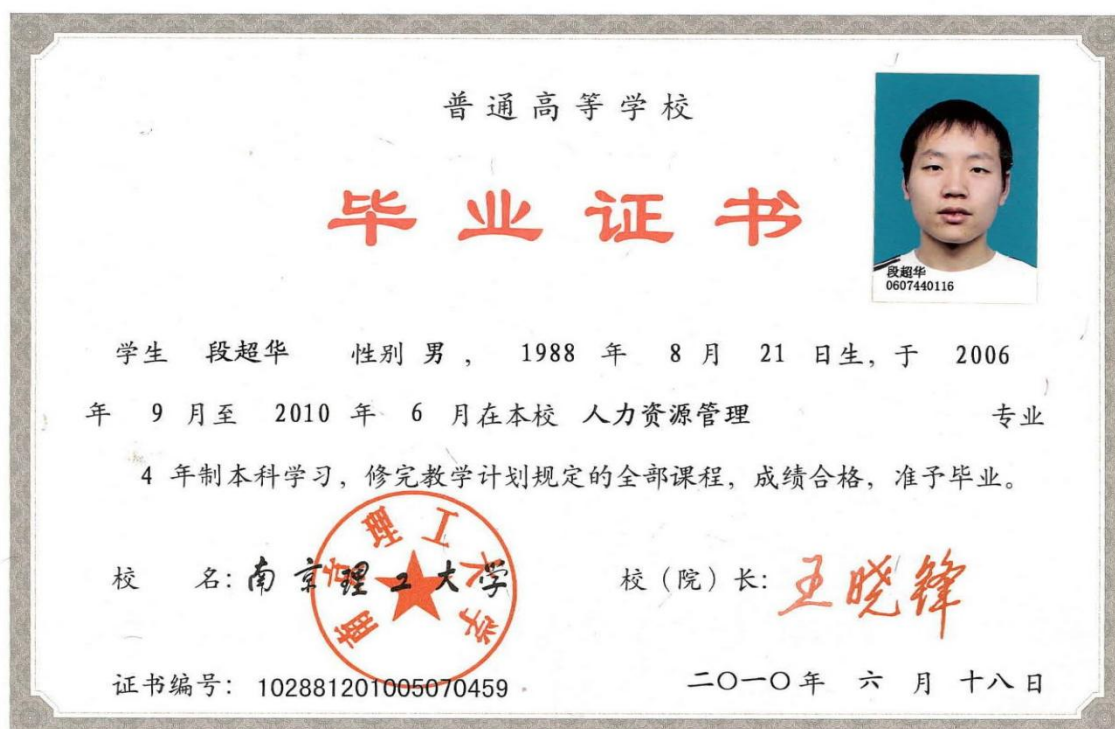 普通高等学校
毕业证书
段超华
0607440116
学生 段超华 性别 男 ， 1988 年 8 月 21 日生，于 2006
年 9 月至 2010 年 6 月在本校 人力资源管理 专业
4 年制本科学习，修完教学计划规定的全部课程，成绩合格，准予毕业。
校 名：南京理工大学 校（院）长：王晓锋
南京理工大学
证书编号： 102881201005070459 二〇一〇年 六 月 十八 日